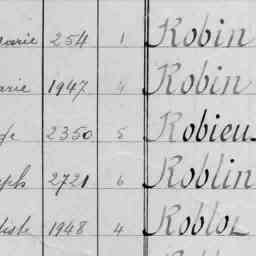 arie 254 1 Robin
arie 1947 4 Robin
2350 5 Robieu
eph 2721 6 Roblin
tiste 1948 4 Roblot